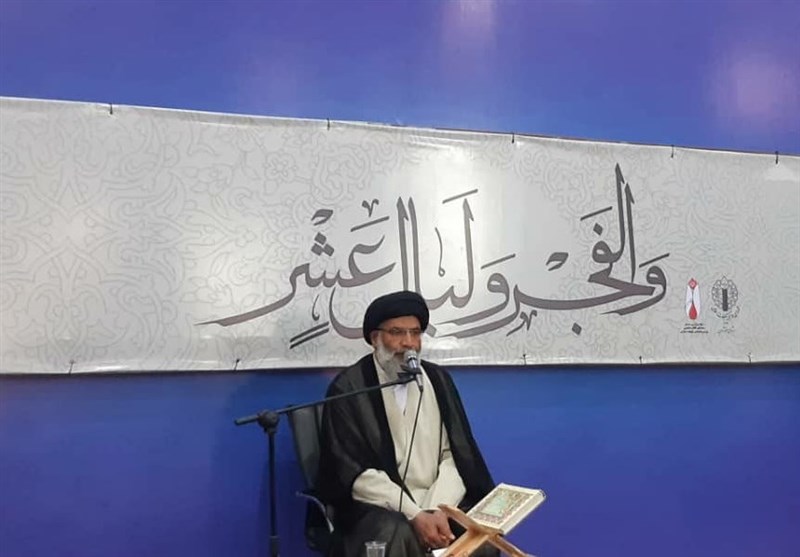 وَالفَجرِ وَلَيالٍ عَشْرٍ